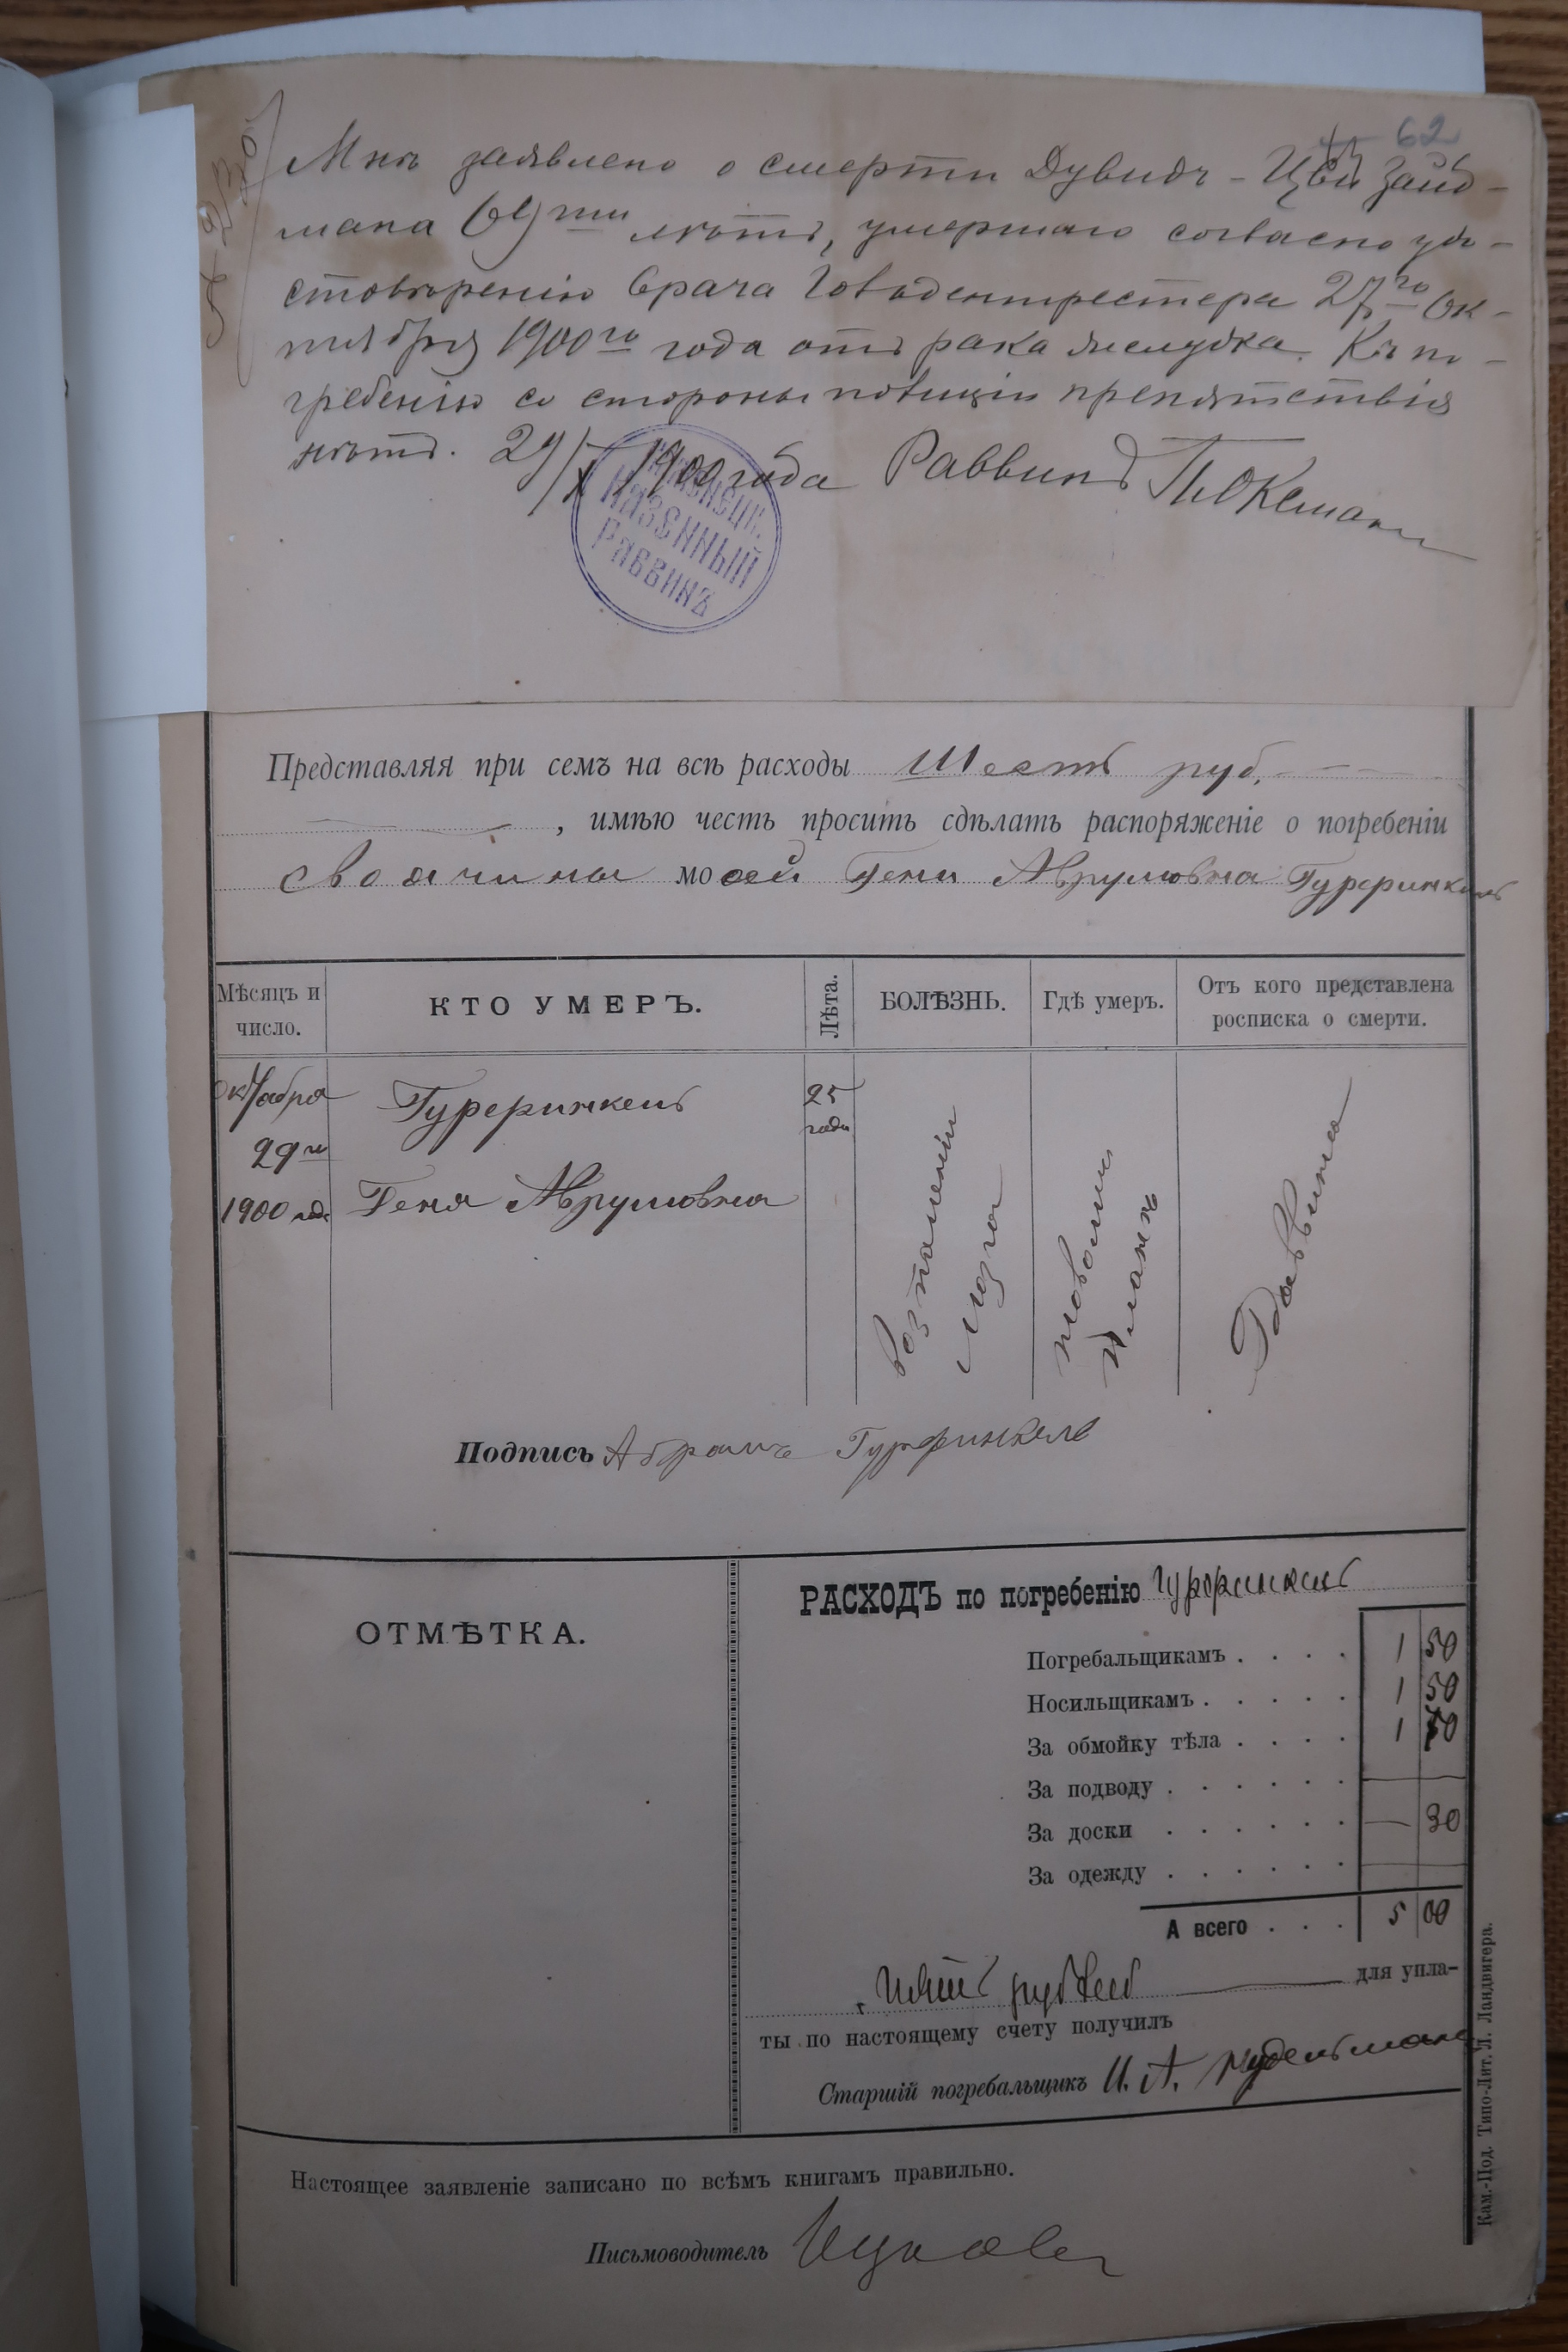 62
Мнѣ заявлено о смерти Дувидъ-Цви Зайд-
мана 69ти лѣтъ, умершаго согласно удо-
стовѣренію врача 27го Ок-
тября 1900го года отъ рака желудка. Къ по-
гребенію со стороны полиціи препятствія
нѣтъ. 29/X 1900 года Раввинъ
КАЗЕННЫЙ
РАВВИНЪ
Представляя при семъ на всѣ расходы Шесть руб.
, имѣю честь просить сдѣлать распоряженіе о погребеніи
своячины моей Гени Аврумовна Гурфинкель
Мѣсяцъ и число.
КТО УМЕРЪ.
Лѣта.
БОЛѢЗНЬ.
Гдѣ умеръ.
Отъ кого представлена росписка о смерти.
Октября
29го
1900 года
Гурфинкель
Геня Аврумовна
25
года
воспаленіи
мозга
новомъ
планѣ
Раввина
Подпись Абрамъ Гурфинкель
ОТМѢТКА.
РАСХОДЪ по погребенію Гурфинкель
Погребальщикамъ . . . . 1 50
Носильщикамъ . . . . . 1 50
За обмойку тѣла . . . . 1 70
За подводу . . . . . . —
За доски . . . . . . — 30
За одежду . . . . . . —
А всего . . . 5 00
пять рублей для упла-
ты по настоящему счету получилъ
Старшій погребальщикъ И. А. Нудельманъ
Настоящее заявленіе записано по всѣмъ книгамъ правильно.
Письмоводитель
Кам.-Под. Типо-Лит. Л. Ландвигера.